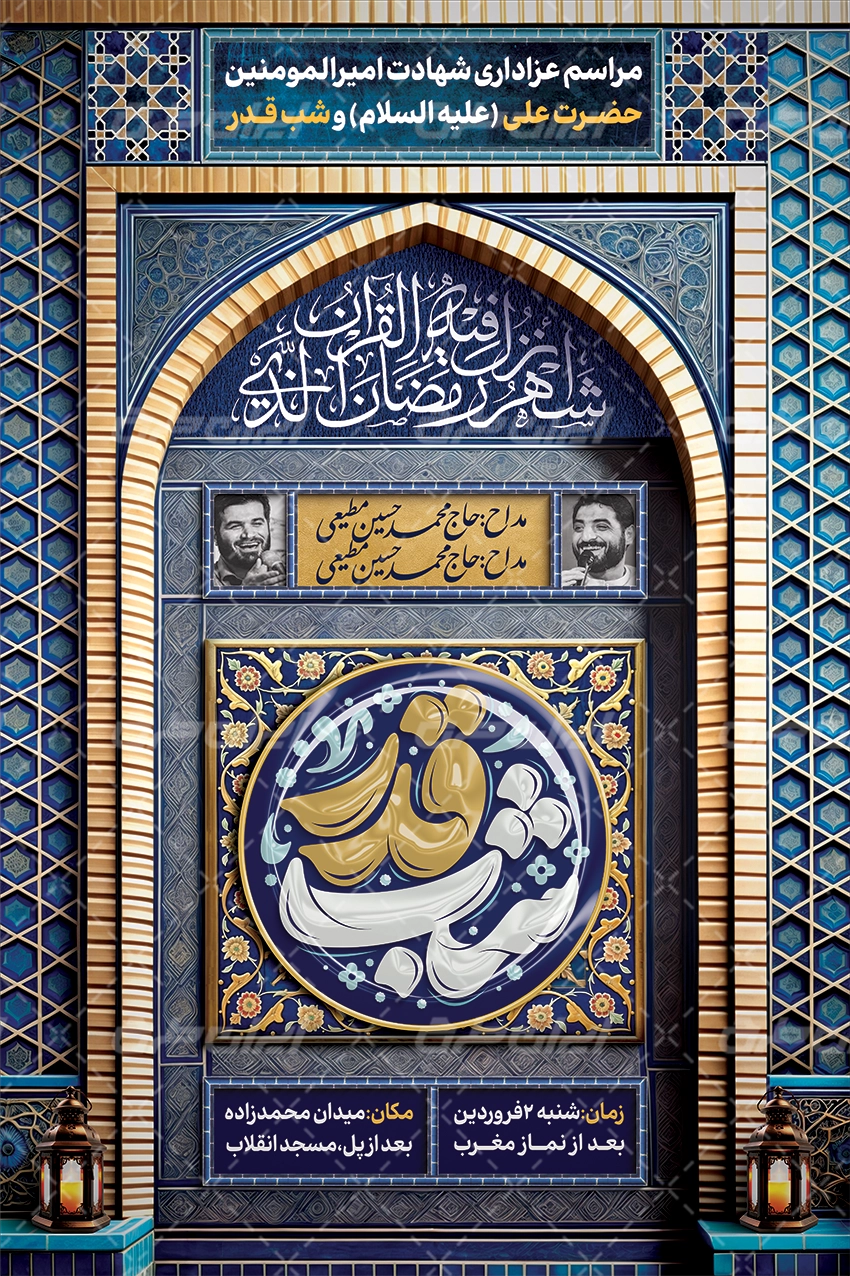 مراسم عزاداری شهادت امیرالمومنین
حضرت علی (علیه السلام) و شب قدر
شهر رمضان الذی
انزل فیه القرآن
مداح: حاج محمد حسین مطیعی
مداح: حاج محمد حسین مطیعی
شب قدر
زمان: شنبه ۲ فروردین
بعد از نماز مغرب
مکان: میدان محمدزاده
بعد از پل، مسجد انقلاب